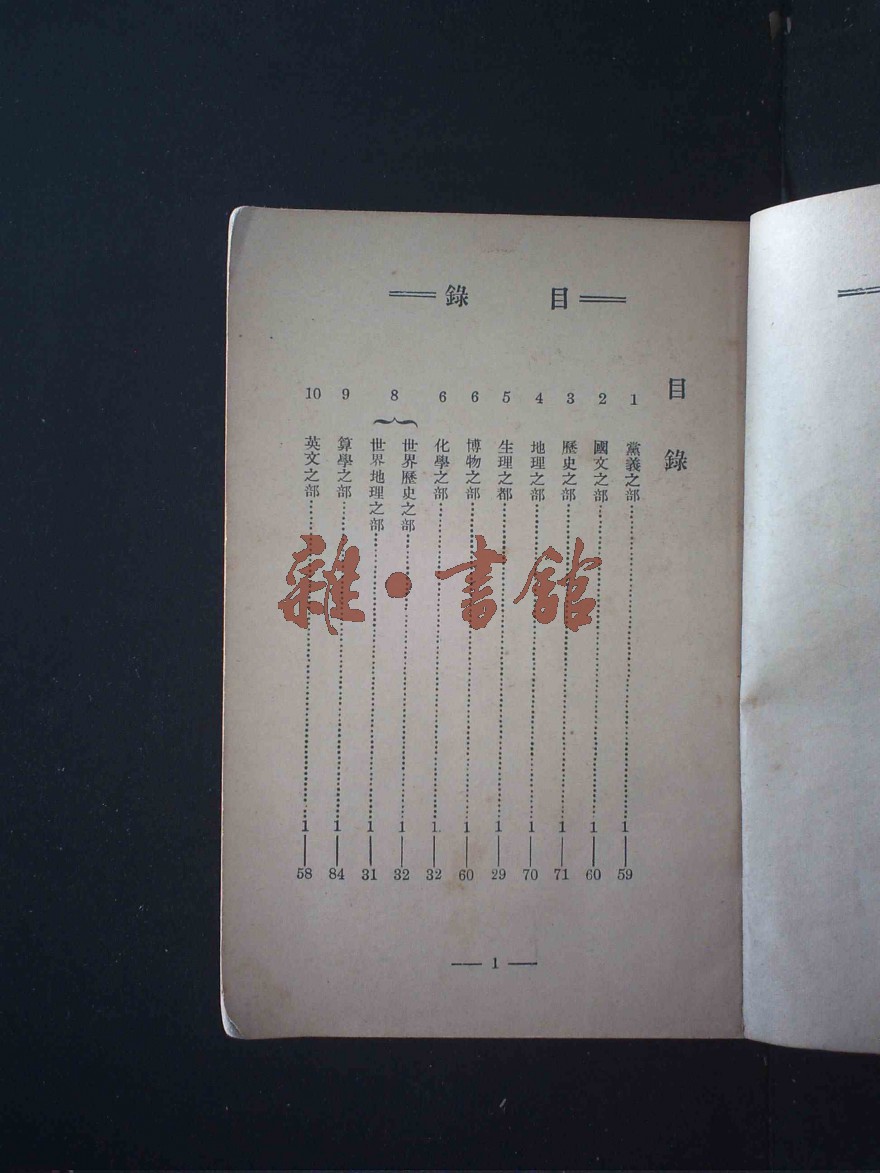 目錄
目錄
1 黨義之部 1——59
2 國文之部 1——60
3 歷史之部 1——71
4 地理之部 1——70
5 生理之都 1——29
6 博物之部 1——60
6 化學之部 1——32
8 世界歷史之部 1——32
世界地理之部 1——31
9 算學之部 1——84
10 英文之部 1——58
— 1 —
雜·書館